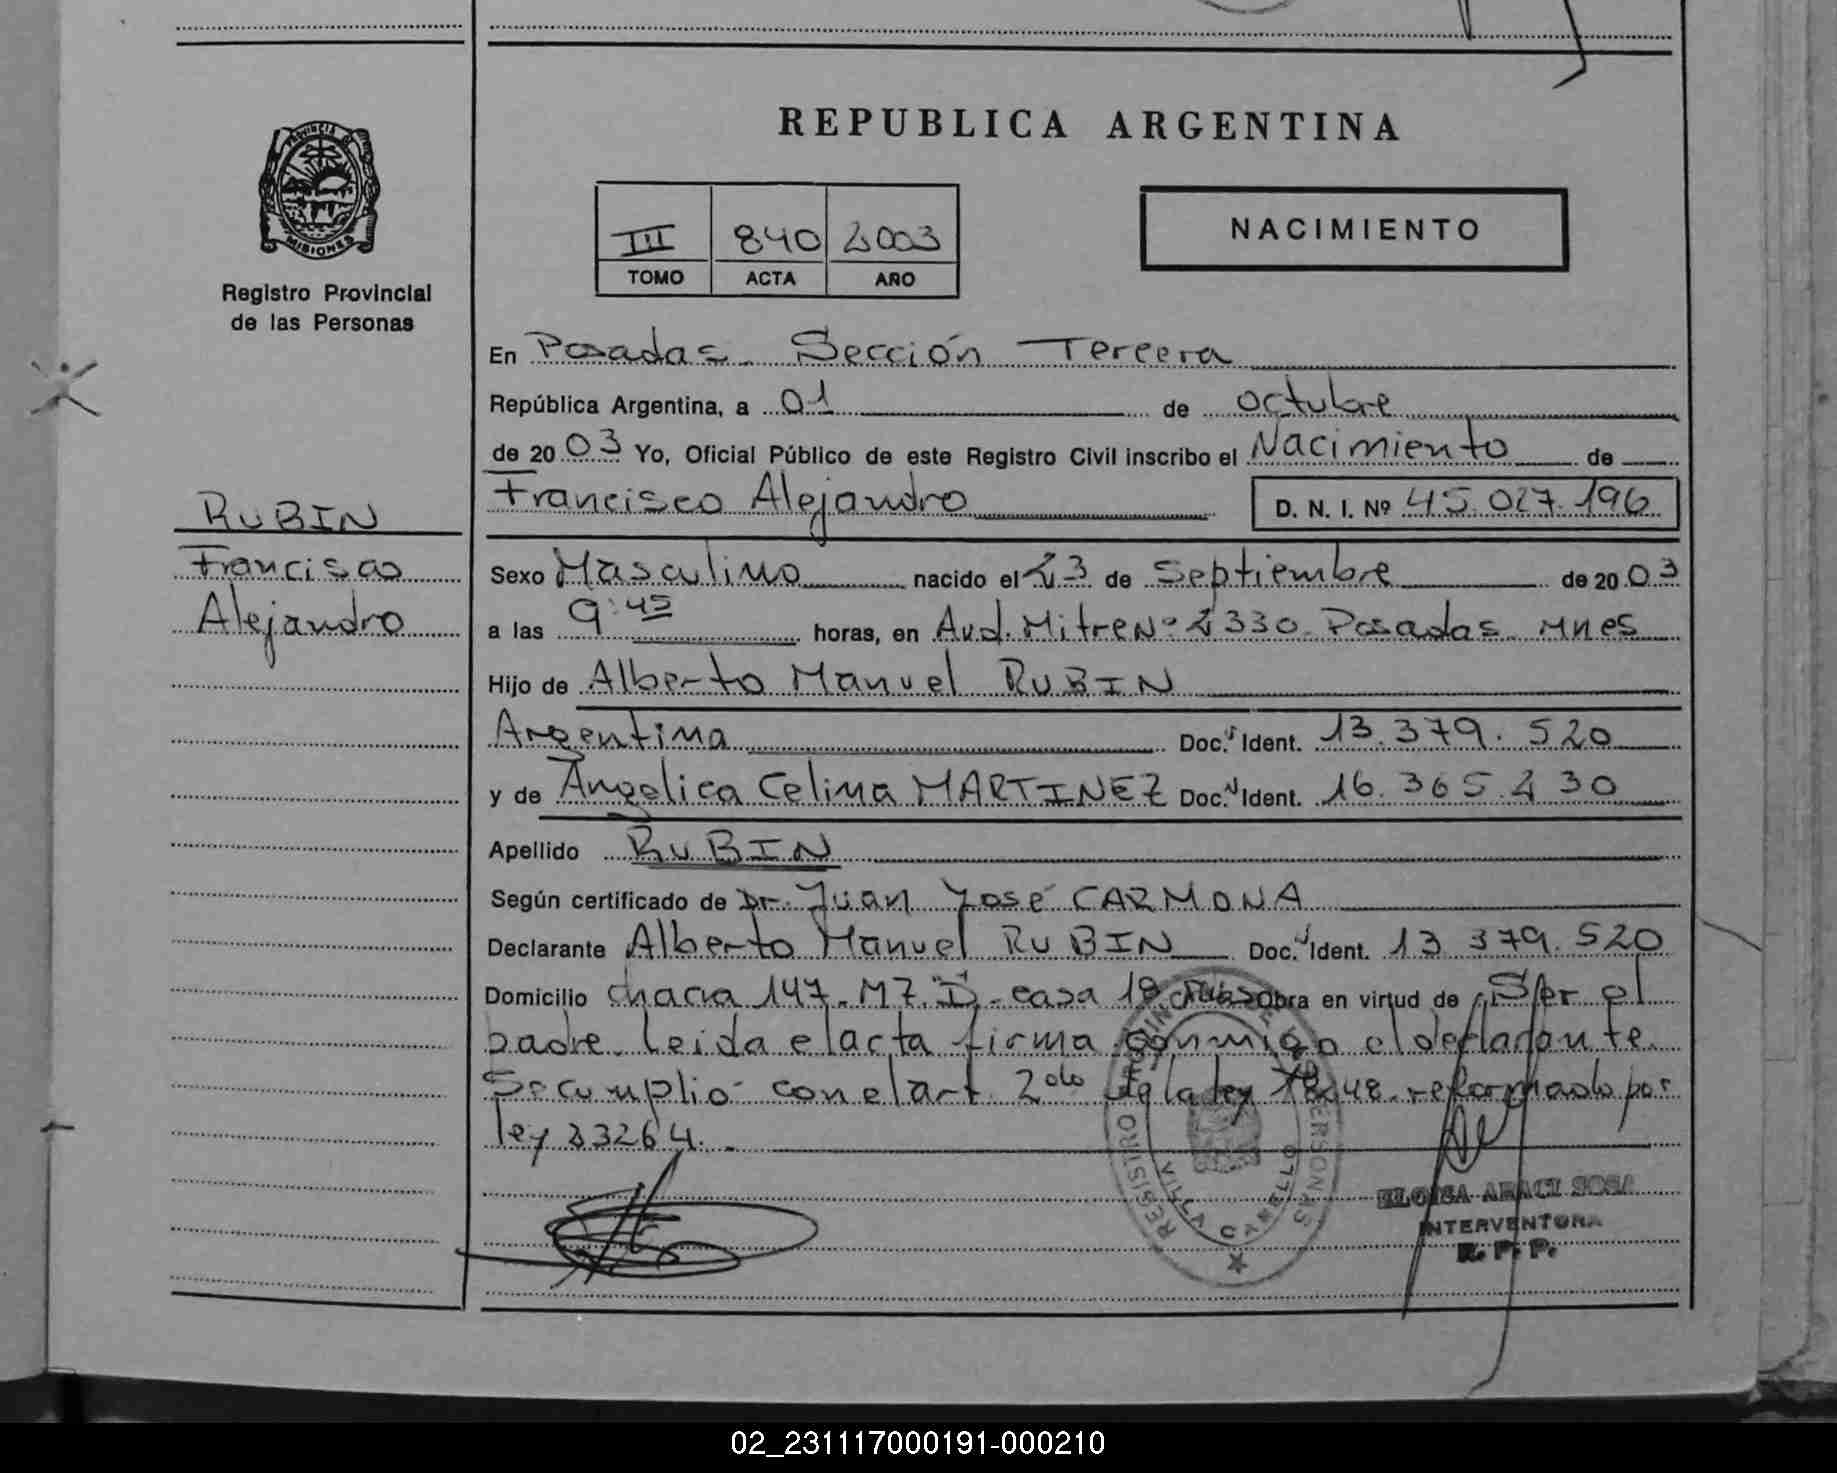 REPUBLICA ARGENTINA
PROVINCIA DE MISIONES
Registro Provincial
de las Personas
III 840 2003
TOMO ACTA AÑO
NACIMIENTO
En Posadas. Sección Tercera
República Argentina, a 01 de octubre
de 2003 Yo, Oficial Público de este Registro Civil inscribo el Nacimiento de
Francisco Alejandro D. N. I. Nº 45.027.196
RUBIN
Francisco
Alejandro
Sexo Masculino nacido el 23 de Septiembre de 2003
a las 9:45 horas, en Avd. Mitre Nº 2330. Posadas. Mnes
Hijo de Alberto Manuel RUBIN
Argentina Doc. Ident. 13.379.520
y de Angelica Celina MARTINEZ Doc. Ident. 16.365.230
Apellido RUBIN
Según certificado de Dr. Juan José CARMONA
Declarante Alberto Manuel RUBIN Doc. Ident. 13.379.520
Domicilio chacra 147. MZ. "D". casa 19. Obra en virtud de Ser el
padre. leida el acta firma conmigo el declarante.
Se cumplio con el art. 2do de la ley 18248. reformado por
ley 23264.
REGISTRO PERSONAS
ELOISA ARACI SOSA
INTERVENTORA
R. P. P.
02_231117000191-000210